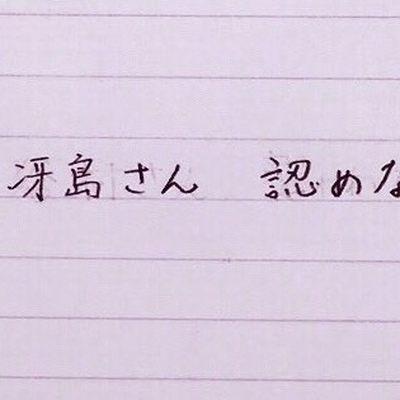 冴島さん 認めな